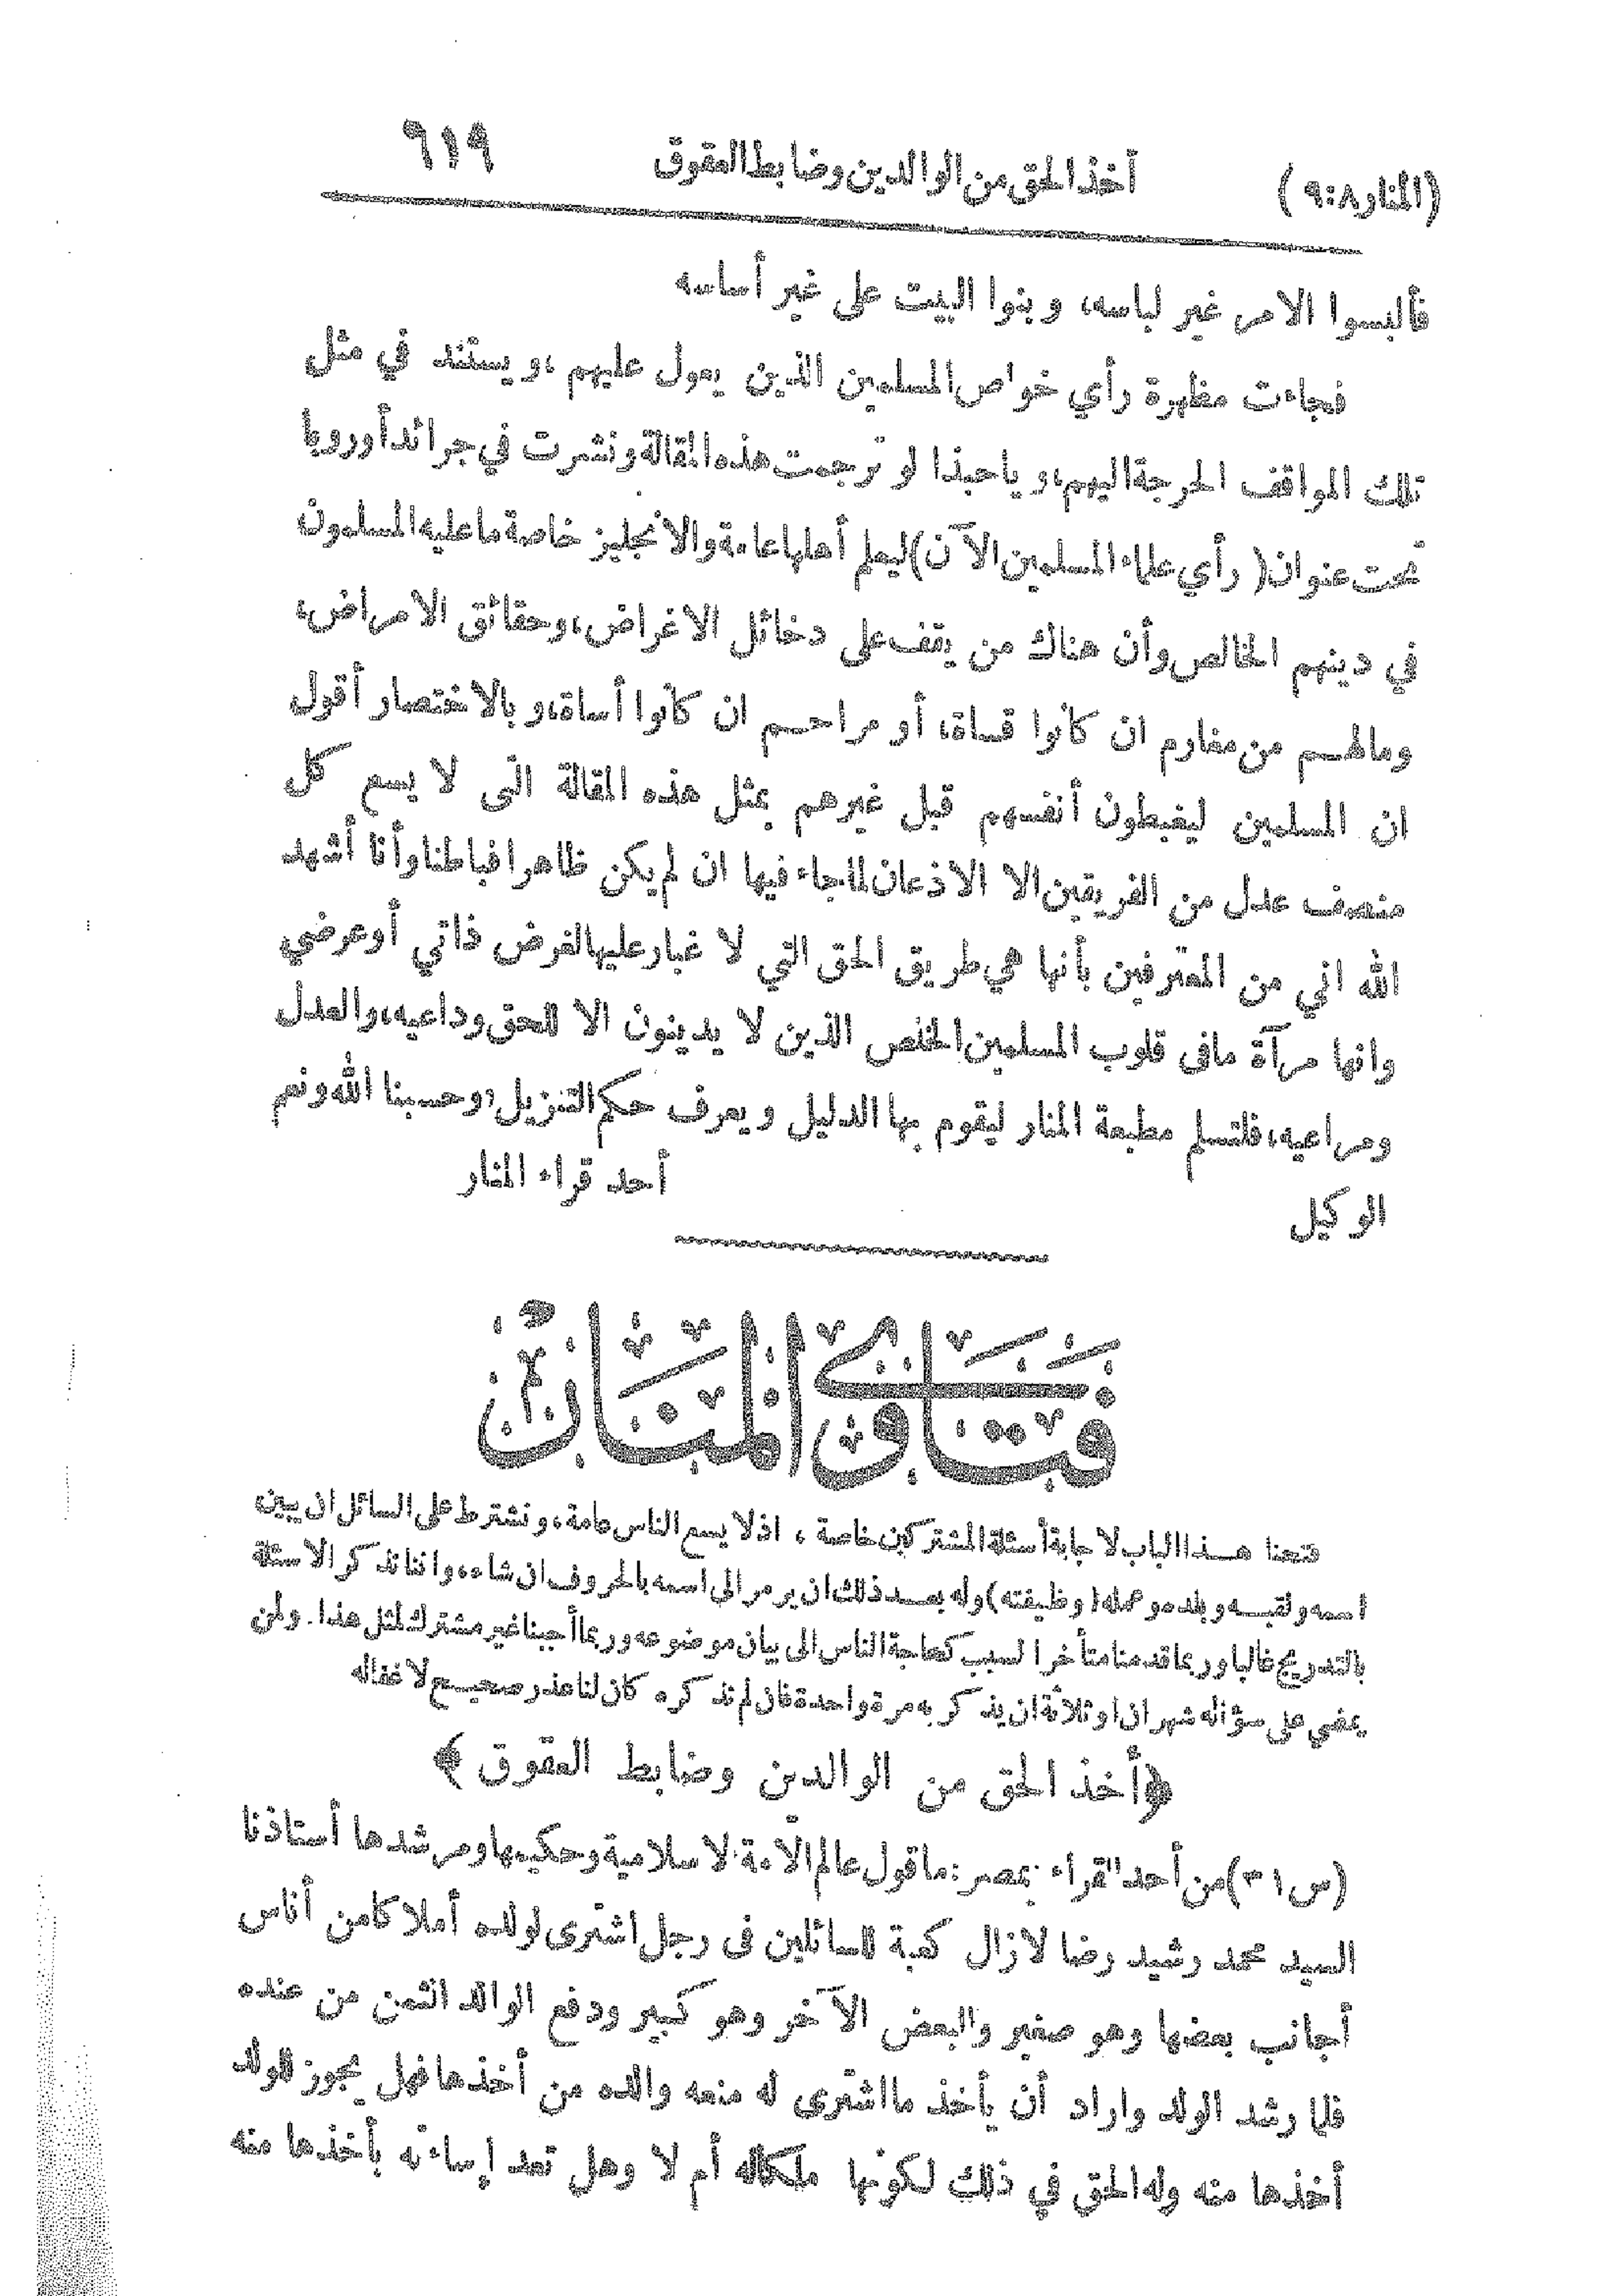 (المنار ٨ : ٩) أخذ الحق من الوالدين وضابط العقوق ٦١٩
فألبسوا الامر غير لباسه، وبنوا البيت على غير أساسه
فجاءت مظهرة رأي خواص المسلمين الذين يعول عليهم، ويستند في مثل
تلك المواقف الحرجة اليهم، وياحبذا لو ترجمت هذه المقالة ونشرت في جرائد أوروبا
تحت عنوان (رأي علماء المسلمين الآن) ليعلم أهلها عامة والانجليز خاصة ما عليه المسلمون
في دينهم الخالص وأن هناك من يقف على دخائل الاغراض، وحقائق الامراض،
ومالهم من مغارم ان كانوا قساة، أو مراحم ان كانوا أساة، وبالاختصار أقول
ان المسلمين ليغبطون أنفسهم قبل غيرهم بمثل هذه المقالة التى لا يسع كل
منصف عدل من الفريقين الا الاذعان لما جاء فيها ان لم يكن ظاهرا فباطنا وأنا أشهد
الله اني من المعترفين بأنها هي طريق الحق التي لا غبار عليها لغرض ذاتي أو عرضي
وانها مرآة مافى قلوب المسلمين الخلص الذين لا يدينون الا للحق وداعيه، والعدل
ومراعيه، فلتسلم مطبعة المنار ليقوم بها الدليل ويعرف حكم التنزيل، وحسبنا الله ونعم
الوكيل أحد قراء المنار
فتاوى المنار
فتحنا هذا الباب لاجابة أسئلة المشتركين خاصة، اذ لا يسع الناس عامة، ونشترط على السائل ان يبين
اسمه ولقبه وبلده وعمله (وظيفته) وله بعد ذلك ان يرمز الى اسمه بالحروف ان شاء، واننا نذكر الاسئلة
بالتدريج غالبا وربما قدمنا متأخرا لسبب كحاجة الناس الى بيان موضوعه وربما أجبنا غير مشترك لمثل هذا. ولمن
يمضي على سؤاله شهران او ثلاثة ان يذكر به مرة واحدة فان لم نذكره كان لنا عذر صحيح لاغفاله
﴿أخذ الحق من الوالدين وضابط العقوق﴾
(س ٣١) من أحد القراء بمصر: ما قول عالم الأمة الاسلامية وحكيمها ومرشدها أستاذنا
السيد محمد رشيد رضا لازال كعبة للسائلين فى رجل اشترى لولده أملاكا من أناس
أجانب بعضها وهو صغير والبعض الآخر وهو كبير ودفع الوالد الثمن من عنده
فلما رشد الولد واراد أن يأخذ ما اشترى له منعه والده من أخذها فهل يجوز للولد
أخذها منه وله الحق في ذلك لكونها ملكا له أم لا وهل تعد إساءته بأخذها منه